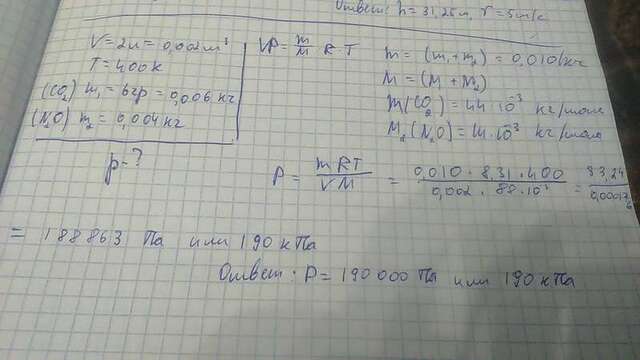 Ответ: h = 31,25м, r = 5м/с
V = 2л = 0,002м³
T = 400К
(CO₂) m₁ = 6гр = 0,006 кг
(N₂O) m₂ = 0,004кг
p - ?
VP = m/M R · T
m = (m₁ + m₂) = 0,010(кг
M = (M + M₂)
M(CO₂) = 44 · 10⁻³ кг/моль
M₂(N₂O) = 44 · 10⁻³ кг/моль
P = mRT/VM = 0,010 · 8,31 · 400/0,002 · 88 · 10³ = 33,24/0,000176
= 188863 Па или 190 кПа
Ответ: P = 190 000 Па или 190 кПа